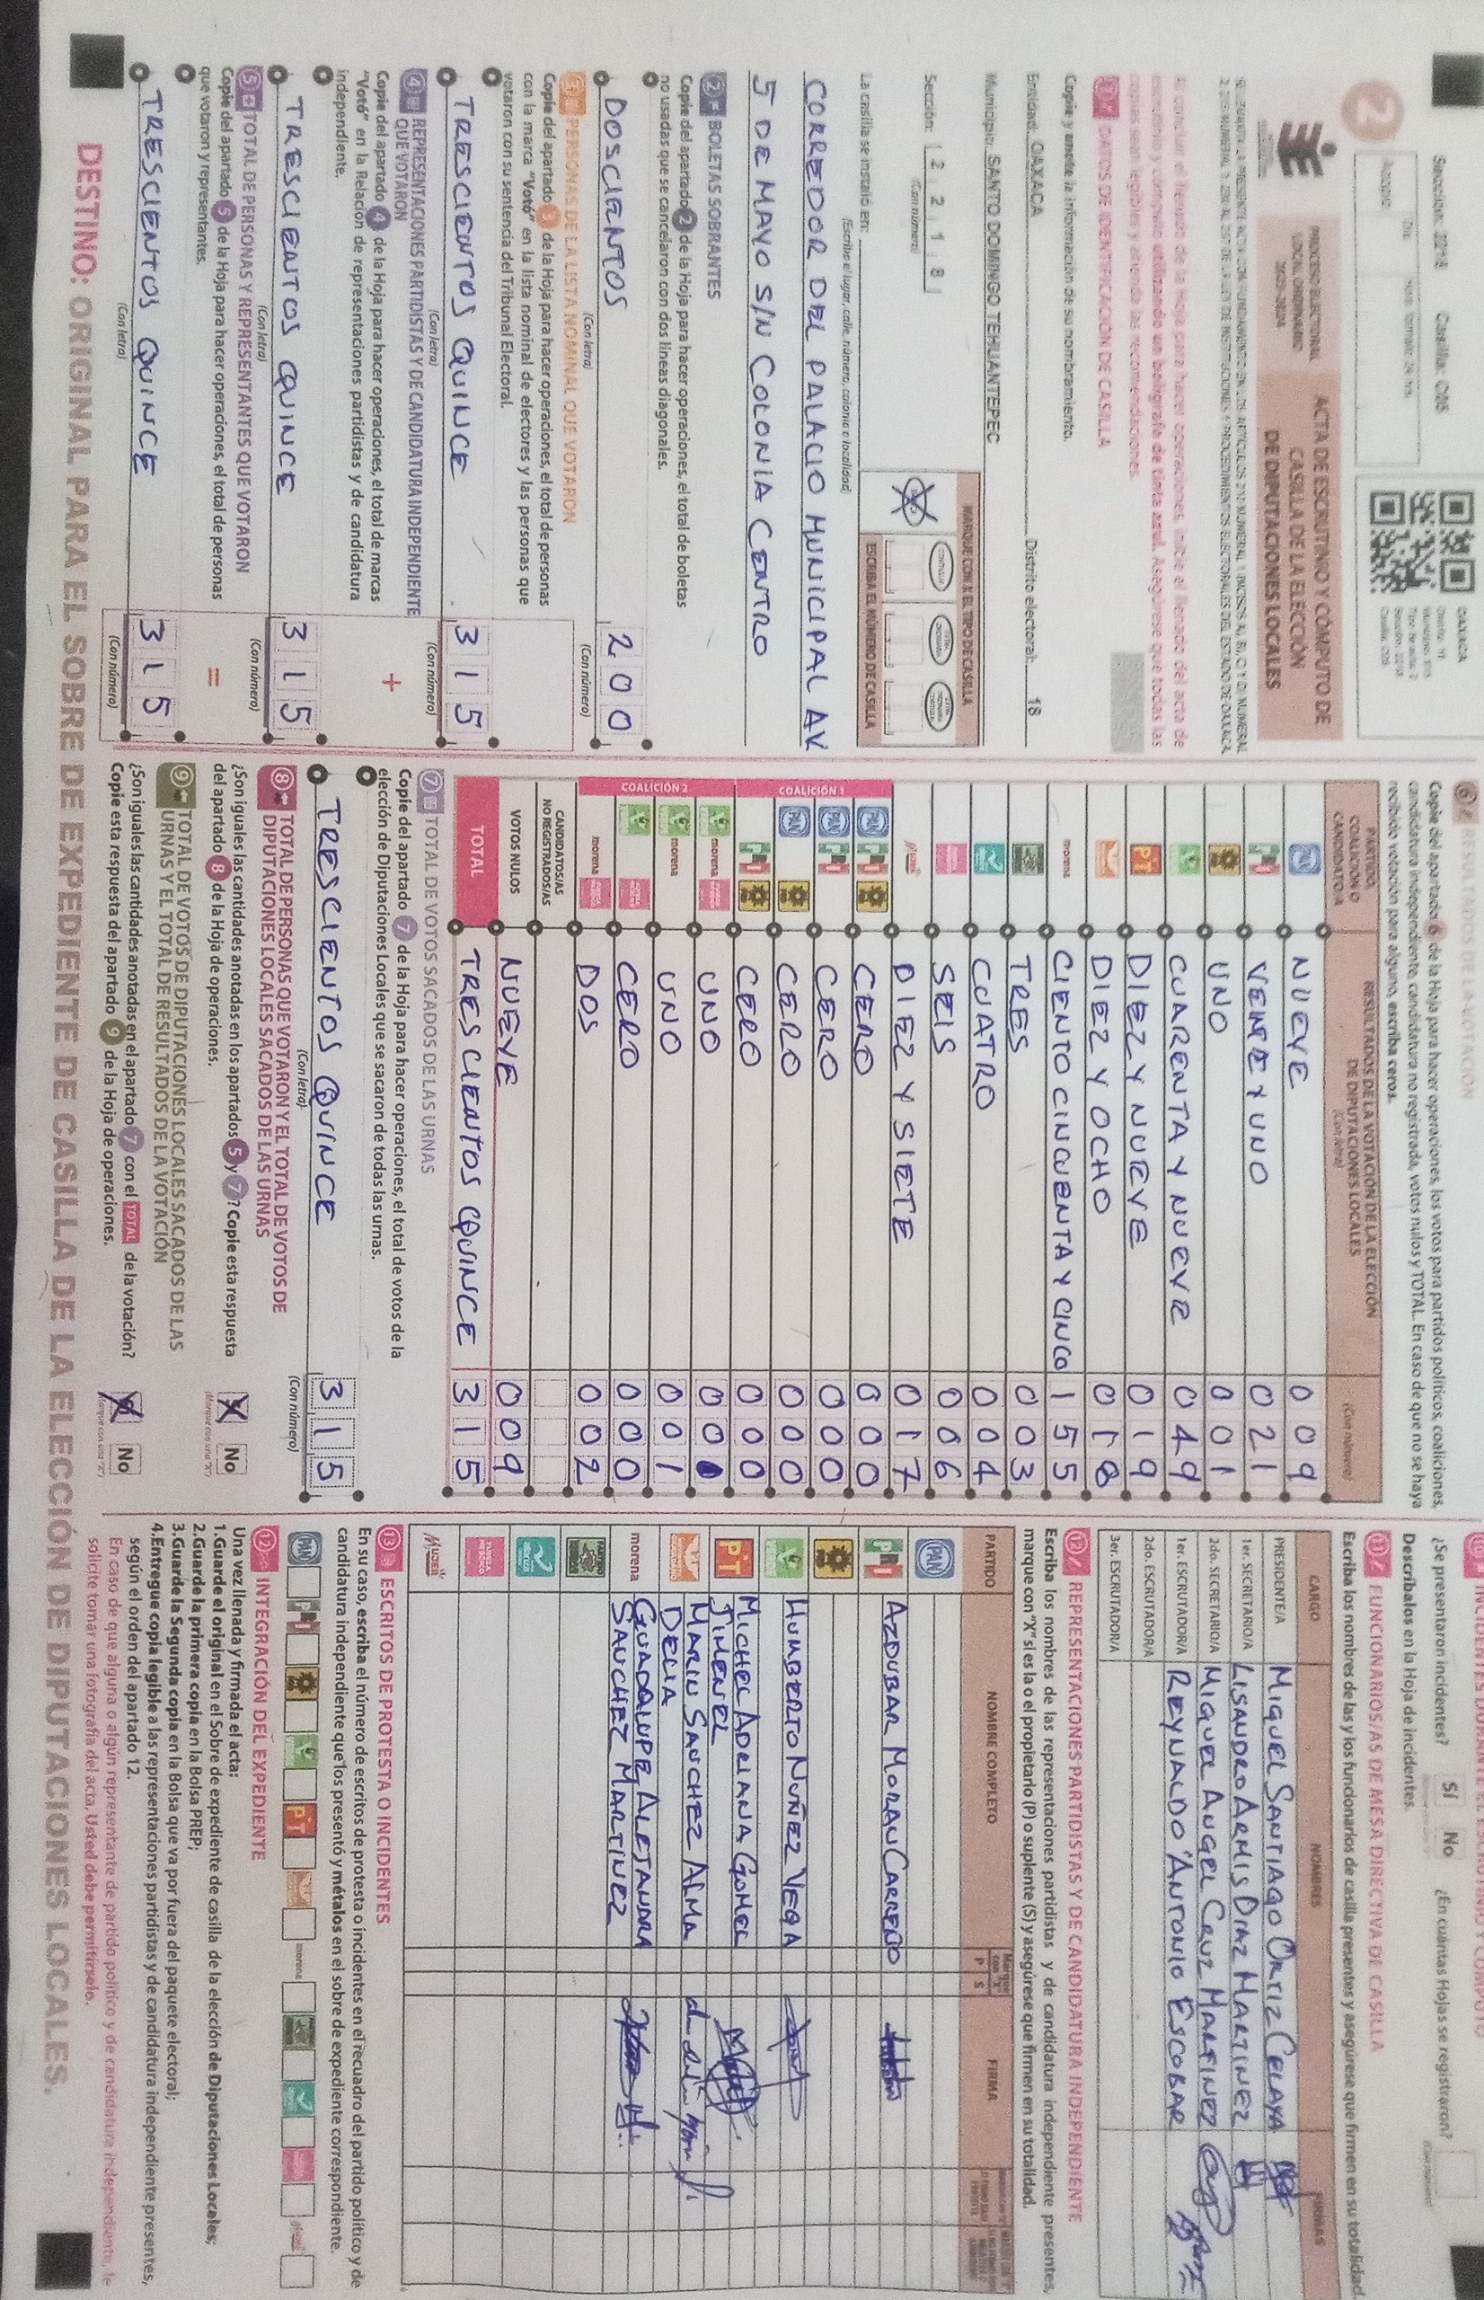 Sección: 2218 Casilla: C05
OAXACA
2
PROCESO ELECTORAL
LOCAL ORDINARIO
2023-2024
ACTA DE ESCRUTINIO Y CÓMPUTO DE
CASILLA DE LA ELECCIÓN
DE DIPUTACIONES LOCALES
Al concluir el llenado de la Hoja para hacer operaciones, inicie el llenado del acta de
escrutinio y cómputo utilizando un bolígrafo de tinta azul. Asegúrese que todas las
copias sean legibles y atienda las recomendaciones.
1 DATOS DE IDENTIFICACIÓN DE CASILLA
Copie y anote la información de su nombramiento.
Entidad: OAXACA Distrito electoral: 18
Municipio: SANTO DOMINGO TEHUANTEPEC
Sección: 2 2 1 8
(Con número)
MARQUE CON X EL TIPO DE CASILLA
ESCRIBA EL NÚMERO DE CASILLA
La casilla se instaló en:
(Escriba el lugar, calle, número, colonia o localidad)
CORREDOR DEL PALACIO MUNICIPAL AV
5 DE MAYO S/N COLONIA CENTRO
2 BOLETAS SOBRANTES
Copie del apartado 2 de la Hoja para hacer operaciones, el total de boletas
no usadas que se cancelaron con dos líneas diagonales.
DOSCIENTOS 200
(Con letra) (Con número)
3 PERSONAS DE LA LISTA NOMINAL QUE VOTARON
Copie del apartado 3 de la Hoja para hacer operaciones, el total de personas
con la marca "Votó" en la lista nominal de electores y las personas que
votaron con su sentencia del Tribunal Electoral.
TRESCIENTOS QUINCE 315
(Con letra) (Con número)
4 REPRESENTACIONES PARTIDISTAS Y DE CANDIDATURA INDEPENDIENTE
QUE VOTARON
Copie del apartado 4 de la Hoja para hacer operaciones, el total de marcas
"Votó" en la Relación de representaciones partidistas y de candidatura
independiente.
+
TRESCIENTOS QUINCE 315
(Con letra) (Con número)
5 TOTAL DE PERSONAS Y REPRESENTANTES QUE VOTARON
Copie del apartado 5 de la Hoja para hacer operaciones, el total de personas
que votaron y representantes.
=
TRESCIENTOS QUINCE 315
(Con letra) (Con número)
6 RESULTADOS DE LA VOTACIÓN
Copie del apartado 6 de la Hoja para hacer operaciones, los votos para partidos políticos, coaliciones,
candidatura independiente, candidatura no registrada, votos nulos y TOTAL. En caso de que no se haya
recibido votación para alguno, escriba ceros.
PARTIDO,
COALICIÓN O
CANDIDATO/A
RESULTADOS DE LA VOTACIÓN DE LA ELECCIÓN
DE DIPUTACIONES LOCALES
(Con letra) (Con número)
PAN NUEVE 009
PRI VEINTE Y UNO 021
UNO 001
CUARENTA Y NUEVE 049
PT DIEZ Y NUEVE 019
DIEZ Y OCHO 018
morena CIENTO CINCUENTA Y CINCO 155
TRES 003
CUATRO 004
SEIS 006
DIEZ Y SIETE 017
COALICIÓN 1
PAN PRI CERO 000
PAN PRI CERO 000
PAN CERO 000
PRI CERO 000
COALICIÓN 2
morena UNO 00
morena UNO 001
CERO 000
morena DOS 002
CANDIDATOS/AS
NO REGISTRADOS/AS
VOTOS NULOS NUEVE 009
TOTAL TRESCIENTOS QUINCE 315
7 TOTAL DE VOTOS SACADOS DE LAS URNAS
Copie del apartado 7 de la Hoja para hacer operaciones, el total de votos de la
elección de Diputaciones Locales que se sacaron de todas las urnas.
TRESCIENTOS QUINCE 315
(Con letra) (Con número)
8 TOTAL DE PERSONAS QUE VOTARON Y EL TOTAL DE VOTOS DE
DIPUTACIONES LOCALES SACADOS DE LAS URNAS
¿Son iguales las cantidades anotadas en los apartados 5 y 7? Copie esta respuesta
del apartado 8 de la Hoja de operaciones.
X No
9 TOTAL DE VOTOS DE DIPUTACIONES LOCALES SACADOS DE LAS
URNAS Y EL TOTAL DE RESULTADOS DE LA VOTACIÓN
¿Son iguales las cantidades anotadas en el apartado 7 con el TOTAL de la votación?
Copie esta respuesta del apartado 9 de la Hoja de operaciones.
X No
¿Se presentaron incidentes? Sí No ¿En cuántas Hojas se registraron?
Descríbalos en la Hoja de incidentes.
11 FUNCIONARIOS/AS DE MESA DIRECTIVA DE CASILLA
Escriba los nombres de las y los funcionarios de casilla presentes y asegúrese que firmen en su totalidad.
CARGO NOMBRES FIRMAS
PRESIDENTE/A MIGUEL SANTIAGO ORTIZ CELAYA
1er. SECRETARIO/A LISANDRO ARMIS DIAZ MARTINEZ
2do. SECRETARIO/A MIGUEL ANGEL CRUZ MARTINEZ
1er. ESCRUTADOR/A REYNALDO ANTONIO ESCOBAR
2do. ESCRUTADOR/A
3er. ESCRUTADOR/A
12 REPRESENTACIONES PARTIDISTAS Y DE CANDIDATURA INDEPENDIENTE
Escriba los nombres de las representaciones partidistas y de candidatura independiente presentes,
marque con "X" si es la o el propietario (P) o suplente (S) y asegúrese que firmen en su totalidad.
PARTIDO NOMBRE COMPLETO P S FIRMA
PAN
PRI AZDUBAR MORAN CARREÑO
HUMBERTO NUÑEZ VEGA
PT MICHEL ADRIANA GOMEZ
JIMENEZ
MARIN SANCHEZ ALMA
DELIA
morena GUADALUPE ALEJANDRA
SANCHEZ MARTINEZ
13 ESCRITOS DE PROTESTA O INCIDENTES
En su caso, escriba el número de escritos de protesta o incidentes en el recuadro del partido político y de
candidatura independiente que los presentó y métalos en el sobre de expediente correspondiente.
PAN PRI PT morena
INTEGRACIÓN DEL EXPEDIENTE
Una vez llenada y firmada el acta:
1.Guarde el original en el Sobre de expediente de casilla de la elección de Diputaciones Locales;
2.Guarde la primera copia en la Bolsa PREP;
3.Guarde la Segunda copia en la Bolsa que va por fuera del paquete electoral;
4.Entregue copia legible a las representaciones partidistas y de candidatura independiente presentes,
según el orden del apartado 12.
En caso de que alguna o algún representante de partido político y de candidatura independiente, le
solicite tomar una fotografía del acta, Usted debe permitírselo.
DESTINO: ORIGINAL PARA EL SOBRE DE EXPEDIENTE DE CASILLA DE LA ELECCIÓN DE DIPUTACIONES LOCALES.